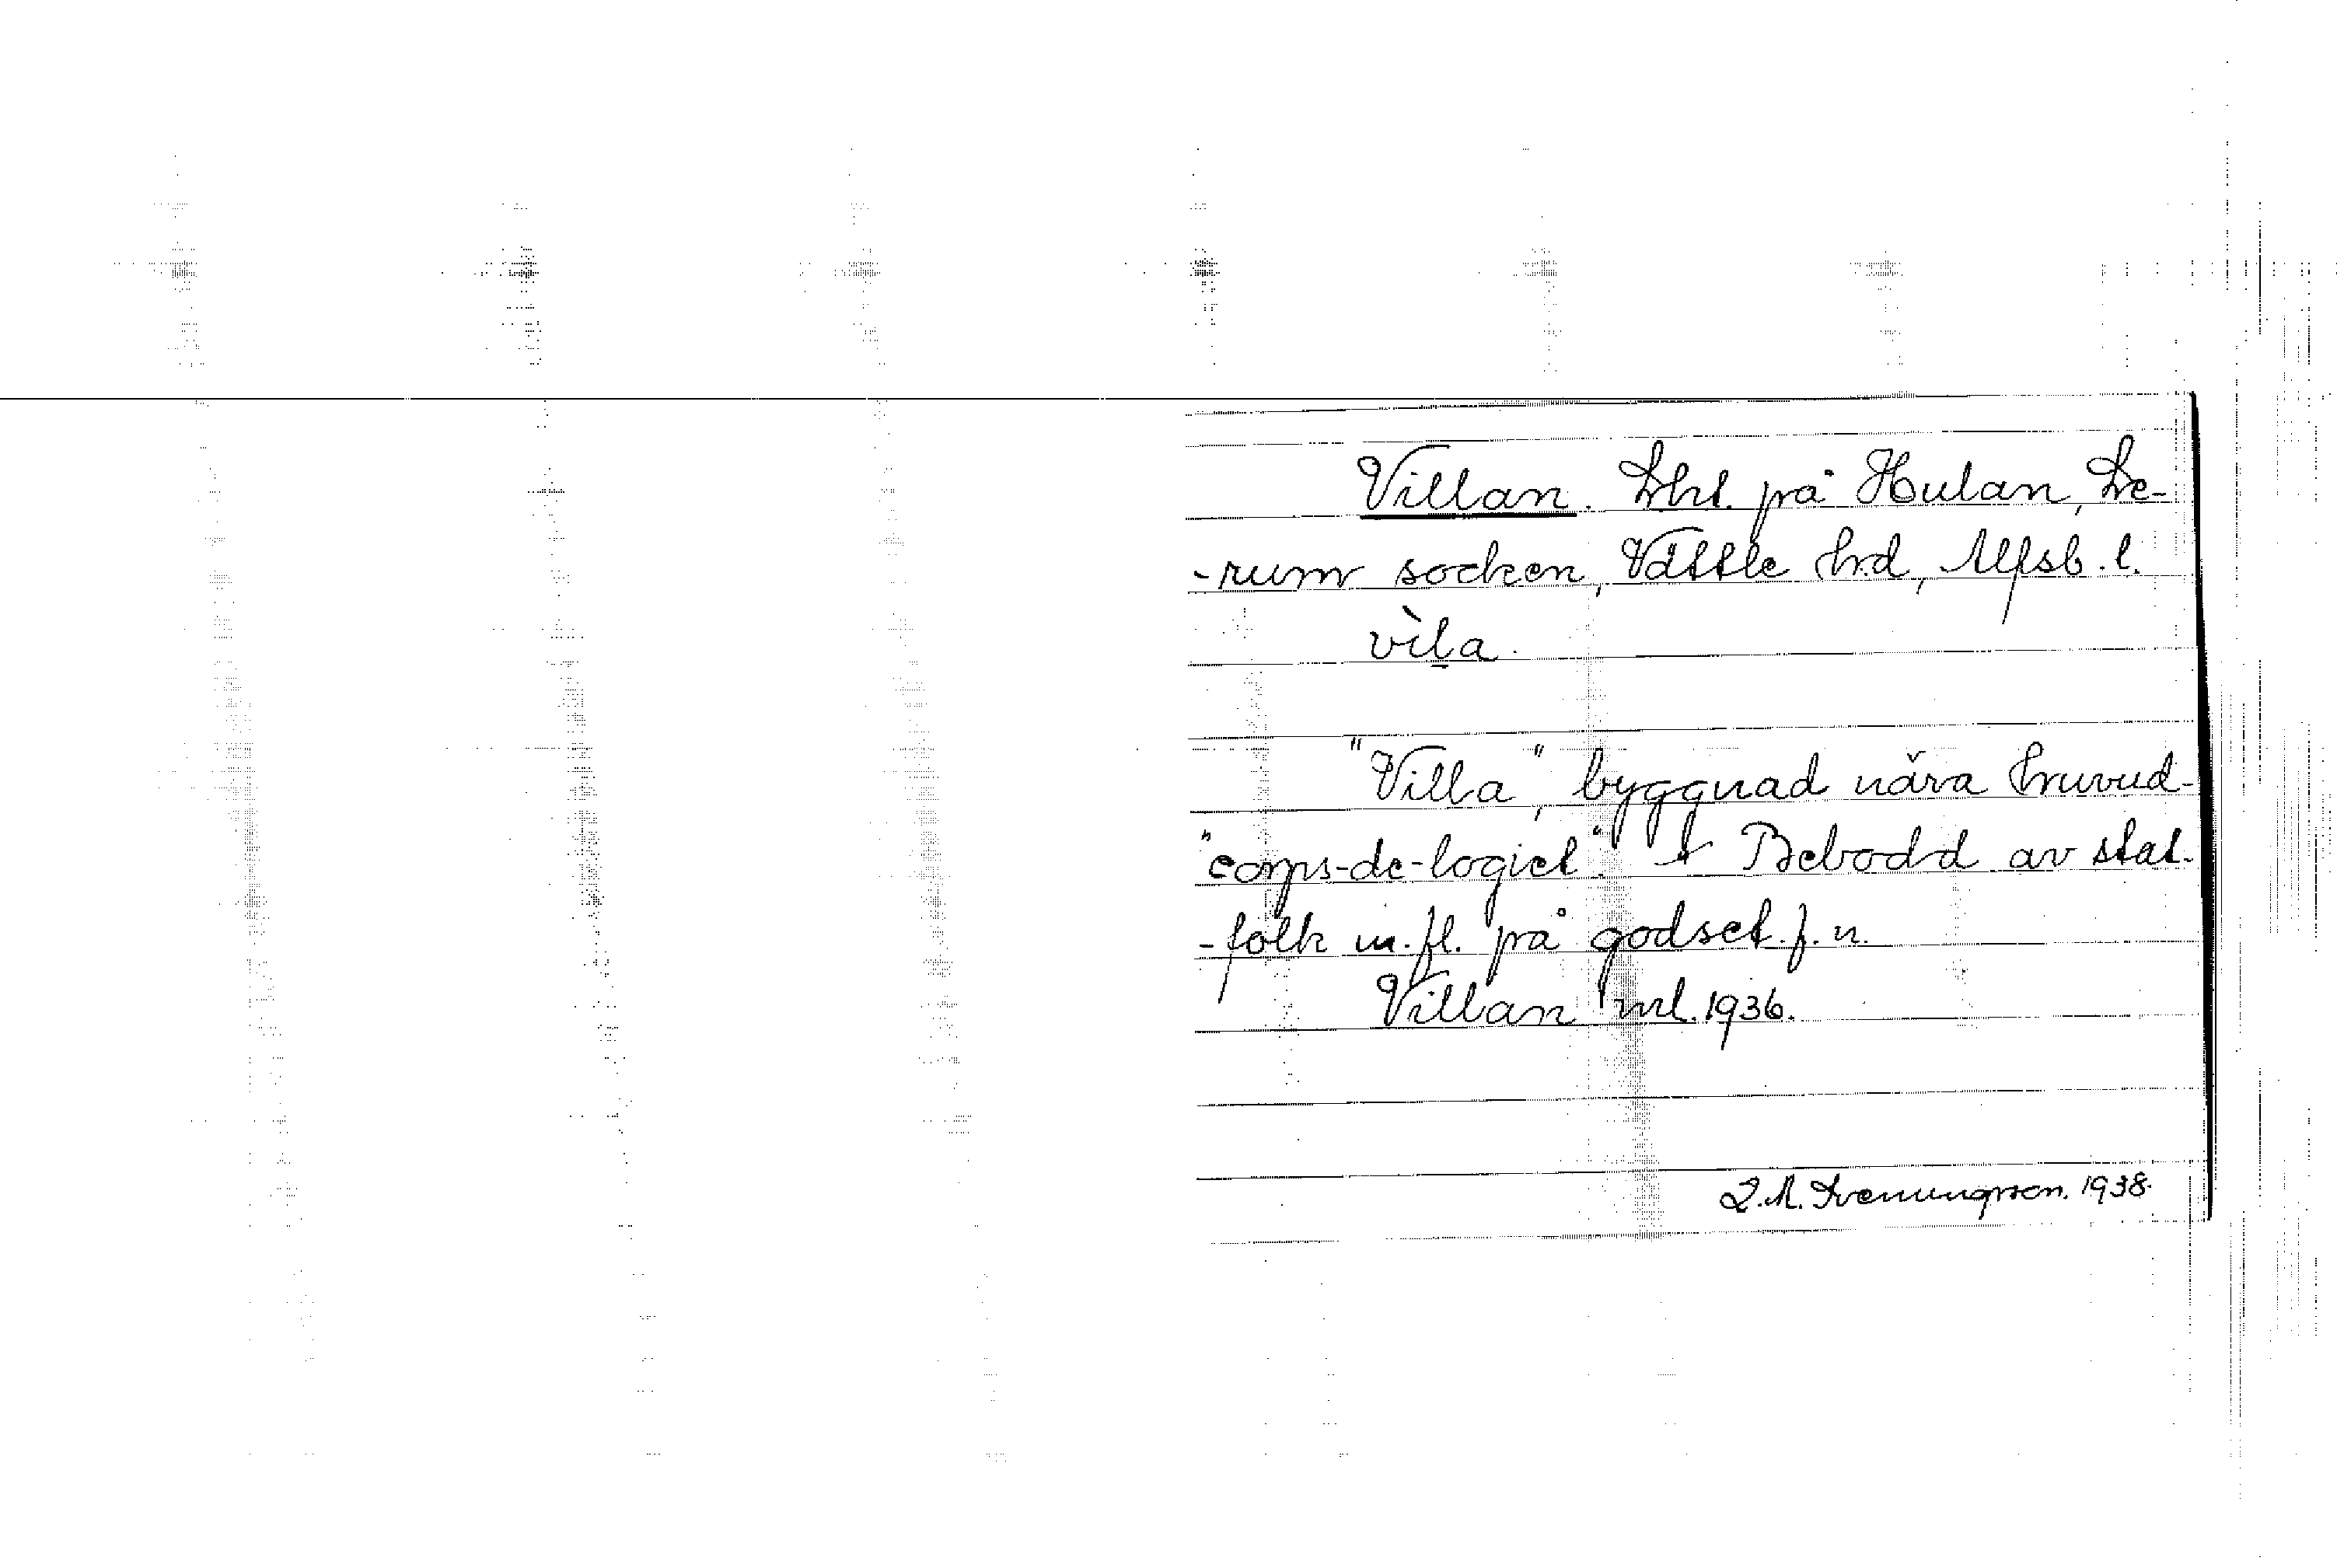 Villan. Lht. på Hulan, Le-
-rum socken, Vättle hrd, Älfsb. l.
vìla.
"Villa", byggnad nära huvud-
"corps-de-logiet". Bebodd av stat-
-folk m.fl. på godset. f. n.
Villan ml. 1936.
1938.